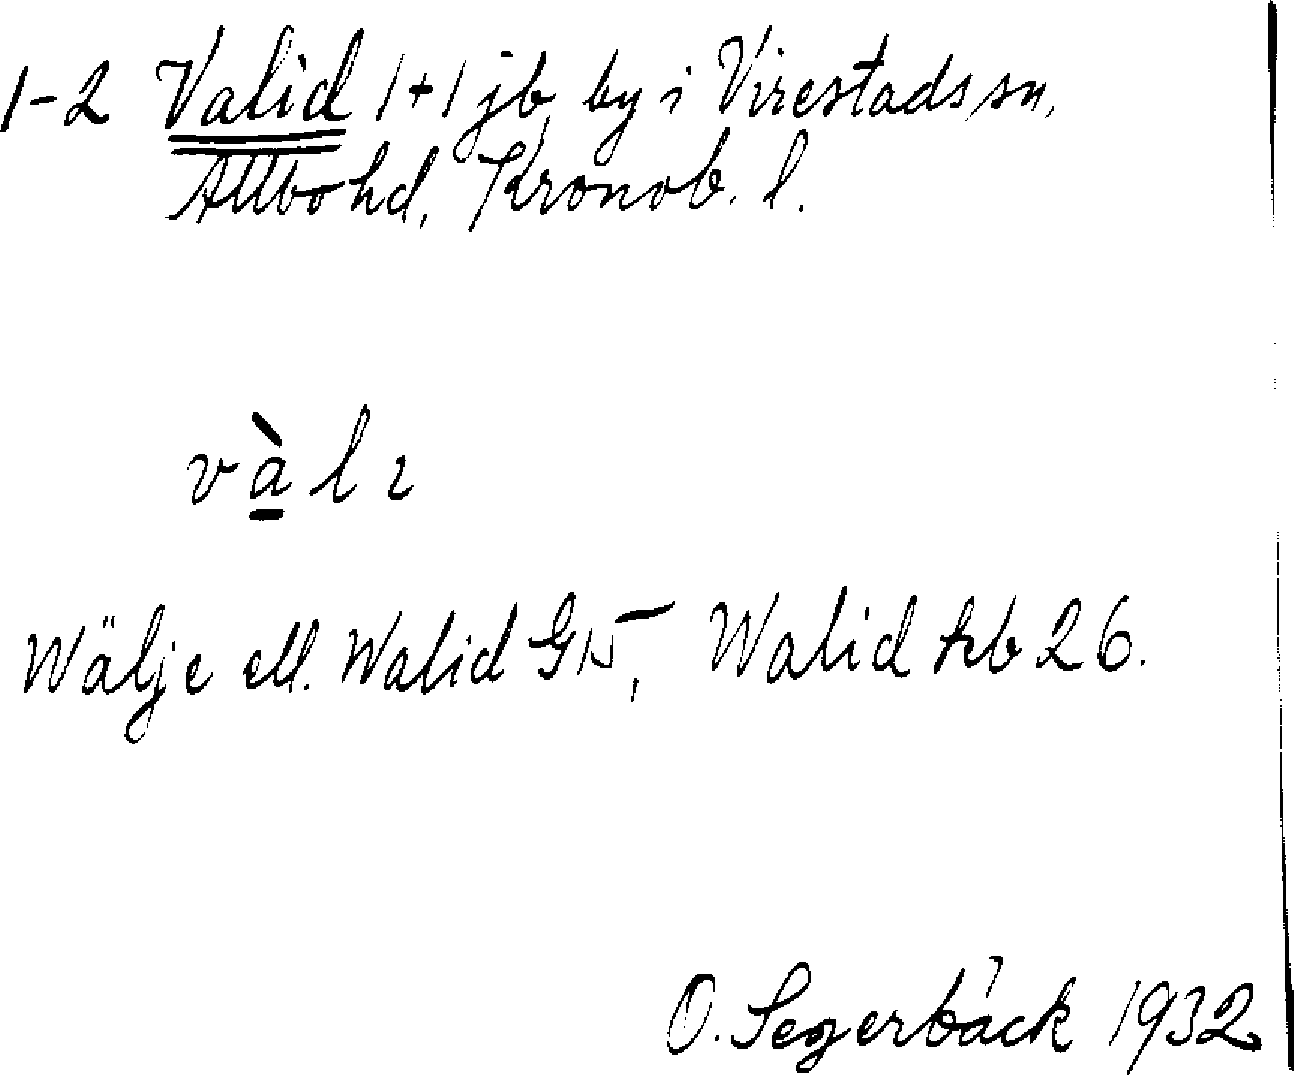 1-2 Valid 1+1 jb, by i Virestads sn,
Allbo hd, Kronob. l.
vàlı
Wälje ell. Walid G15, Walid tkb 26.
O. Segerbäck 1932